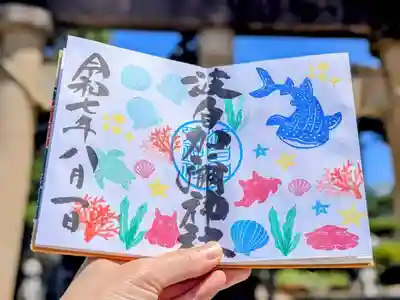 波自加彌神社
令和七年八月一日